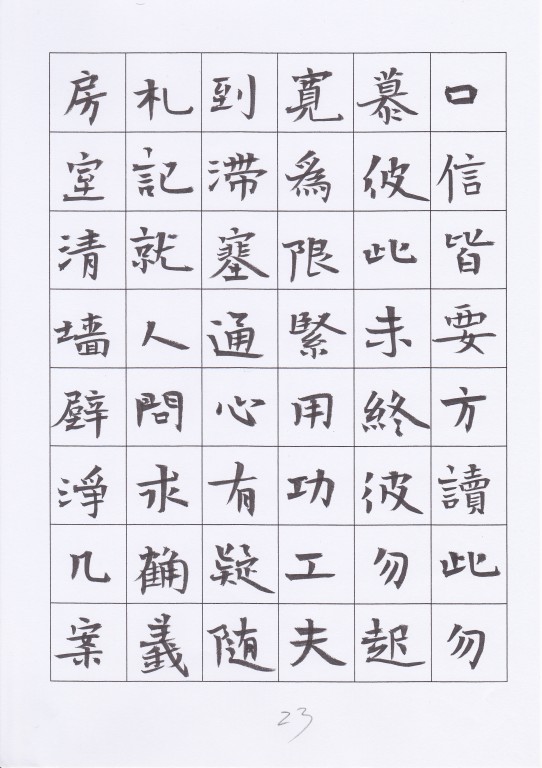 口信皆要方讀此勿
慕彼此未終彼勿起
寬為限緊用功工夫
到滯塞通心有疑随
札記就人問求確義
房室清墙壁淨几案
23